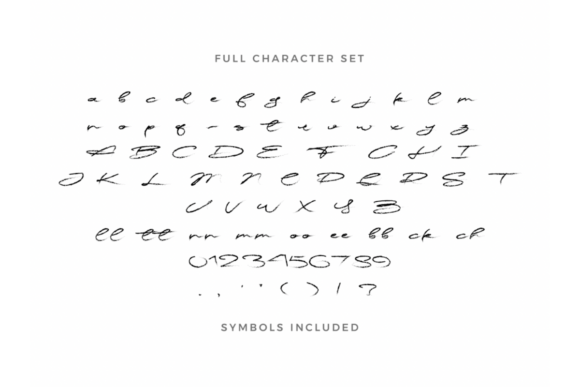 FULL CHARACTER SET
a b c d e f g h i j k l m
n o p q r s t u v w x y z
A B C D E F G H I
J K L M N O P Q R S T
U V W X Y Z
ll tt nn mm oo ee bb ck ch
0123456789
. , ' " ( ) ! ?
SYMBOLS INCLUDED